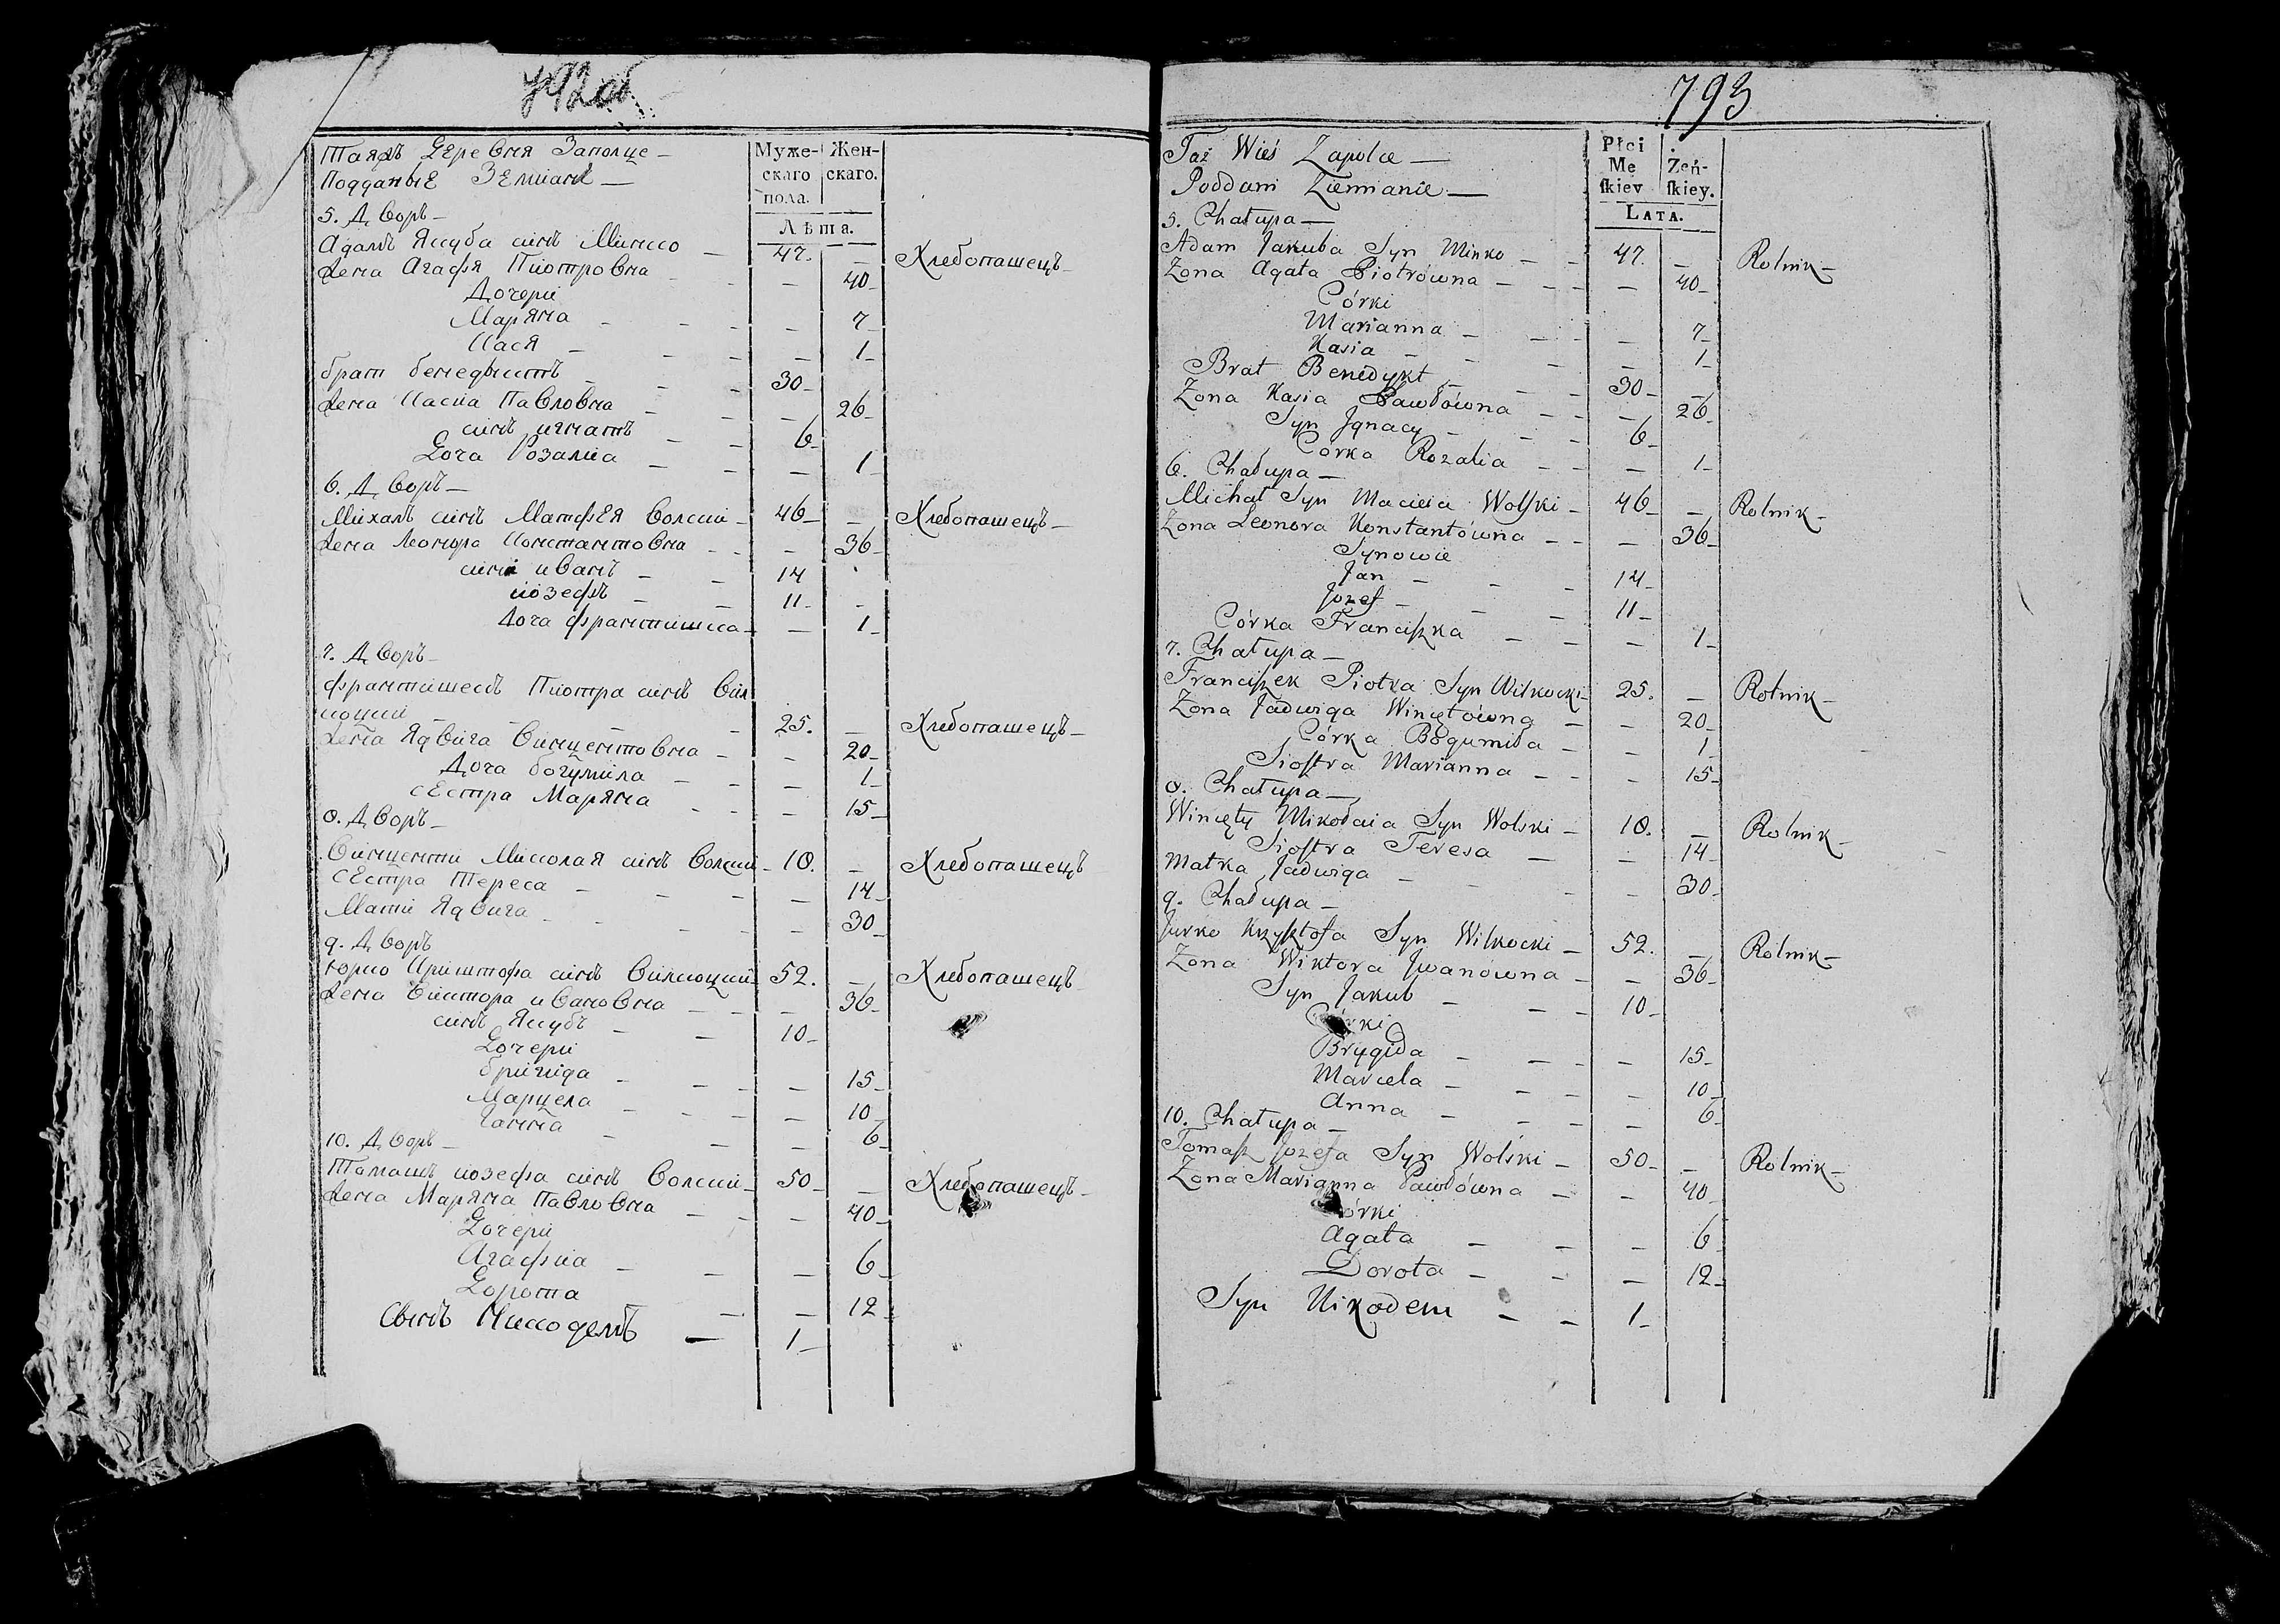 792об
Таяжъ Деревня Заполце —
Подданые Земiане —
Муже-
скаго
пола.
Жен-
скаго.
Лѣта.
5. Дворъ —
Адамъ Якуба синъ Минко — 47. — Хлебопашецъ —
Жена Агафя Пiотровна — — 40 —
Дочери
Маряна — — — — 7 —
Кася — — — — 1 —
братъ бенедыктъ — — — 30 —
Жена Касiа Павловна — — — 26 —
синъ игнатъ — — 6 —
Доча Розалiа — — — 1 —
6. Дворъ —
Михалъ синъ Матфея Волски — 46 — — Хлебопашецъ —
Жена Леонора Константовна — — — 36 —
сини иванъ — — 14
iозефъ — — 11 — —
Доча франтишка — — 1 —
7. Дворъ —
франтишекъ Пiотра синъ Вил
коцки — — — — 25. — Хлебопашецъ —
Жена Ядвига Винцентовна — — 20 —
Доча богумила — — — 1 —
сестра Маряна — — — 15 —
8. Дворъ —
Винценти Миколая синъ Волски — 18. — Хлебопашецъ
сестра Тереса — — — — 14 —
Мати Ядвига — — — — 30 —
9. Дворъ
Юрко Криштофа синъ Вилкоцки — 52. — Хлебопашецъ —
Жена Виктора ивановна — — — 36 —
синъ Якубъ — — 10 —
Дочери
бригида — — — — 15 —
Марцела — — — — 10 —
Ганна — — — 6 —
10. Дворъ —
Тамашъ iозефа синъ Волски — 50 — — Хлебопашецъ —
Жена Маряна Павловна — — — 40 —
Дочери
Агафiа — — — 6 —
Дорота — — 12
Сынъ Никодемъ — 1 —
793
Taż Wieś Zapolce —
Poddani Ziemianie —
Płci
Mę
ſkiey
Żeń-
ſkiey.
Lata.
5. Chałupa —
Adam Jakuba Syn Minko — — 47. — Rolnik —
Zona Agata Piotrówna — — — — 40 —
Córki
Marianna — — — — 7 —
Kasia — — — — 1 —
Brat Benedykt — — — 30 — —
Zona Kasia Pawłówna — — — 26
Syn Jgnacy — — — 6 —
Córka Rozalia — — — 1 —
6. Chałupa —
Michał Syn Macieia Wolſki — 46 — — Rolnik —
Zona Leonora Konstantówna — — — 36 —
Synowie
Jan — — — 14 —
Jozef — — — 11 —
Córka Franciſzka — — — 1 —
7. Chałupa —
Franciſzek Piotra Syn Wilkocki — 25. — Rolnik —
Zona Jadwiga Wincętówna — — 20 —
Córka Bogumiła — — 1 —
Sioſtra Marianna — — — 15 —
8. Chałupa —
Wincęty Mikołaia Syn Wolski — 18. — Rolnik —
Sioſtra Teresa — — 14 —
Matka Jadwiga — — — — 30 —
9. Chałupa —
Jurko Krzyſztofa Syn Wilkocki — 52. — Rolnik —
Zona Wiktora Jwanówna — — 36 —
Syn Jakub — — — 10 —
Córki
Brygida — — — — 15 —
Marcela — — — — 10 —
Anna — — — — 6 —
10. Chałupa —
Tomaſz Jozefa Syn Wolski — 50 — — Rolnik —
Zona Marianna Pawłówna — — 40 —
Córki
Agata — — — 6 —
Dorota — — — 12 —
Syn Nikodem — — 1 —